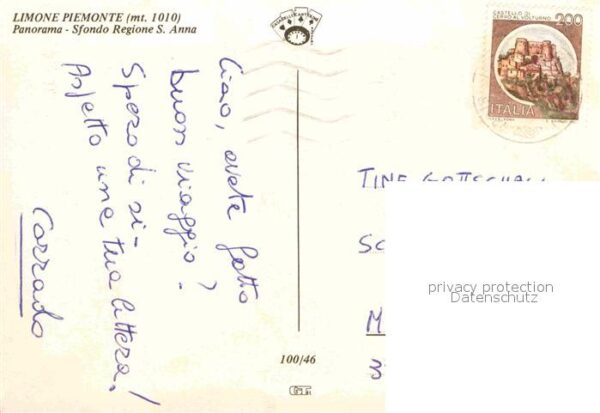 LIMONE PIEMONTE (mt. 1010)
Panorama - Sfondo Regione S. Anna
Ciao, avete fatto
buon viaggio?
Spero di si-
Aspetto una tua lettera!
Corrado
CASTELLO DI
CERRO AL VOLTURNO
200
ITALIA
TINE
privacy protection
Datenschutz
100/46